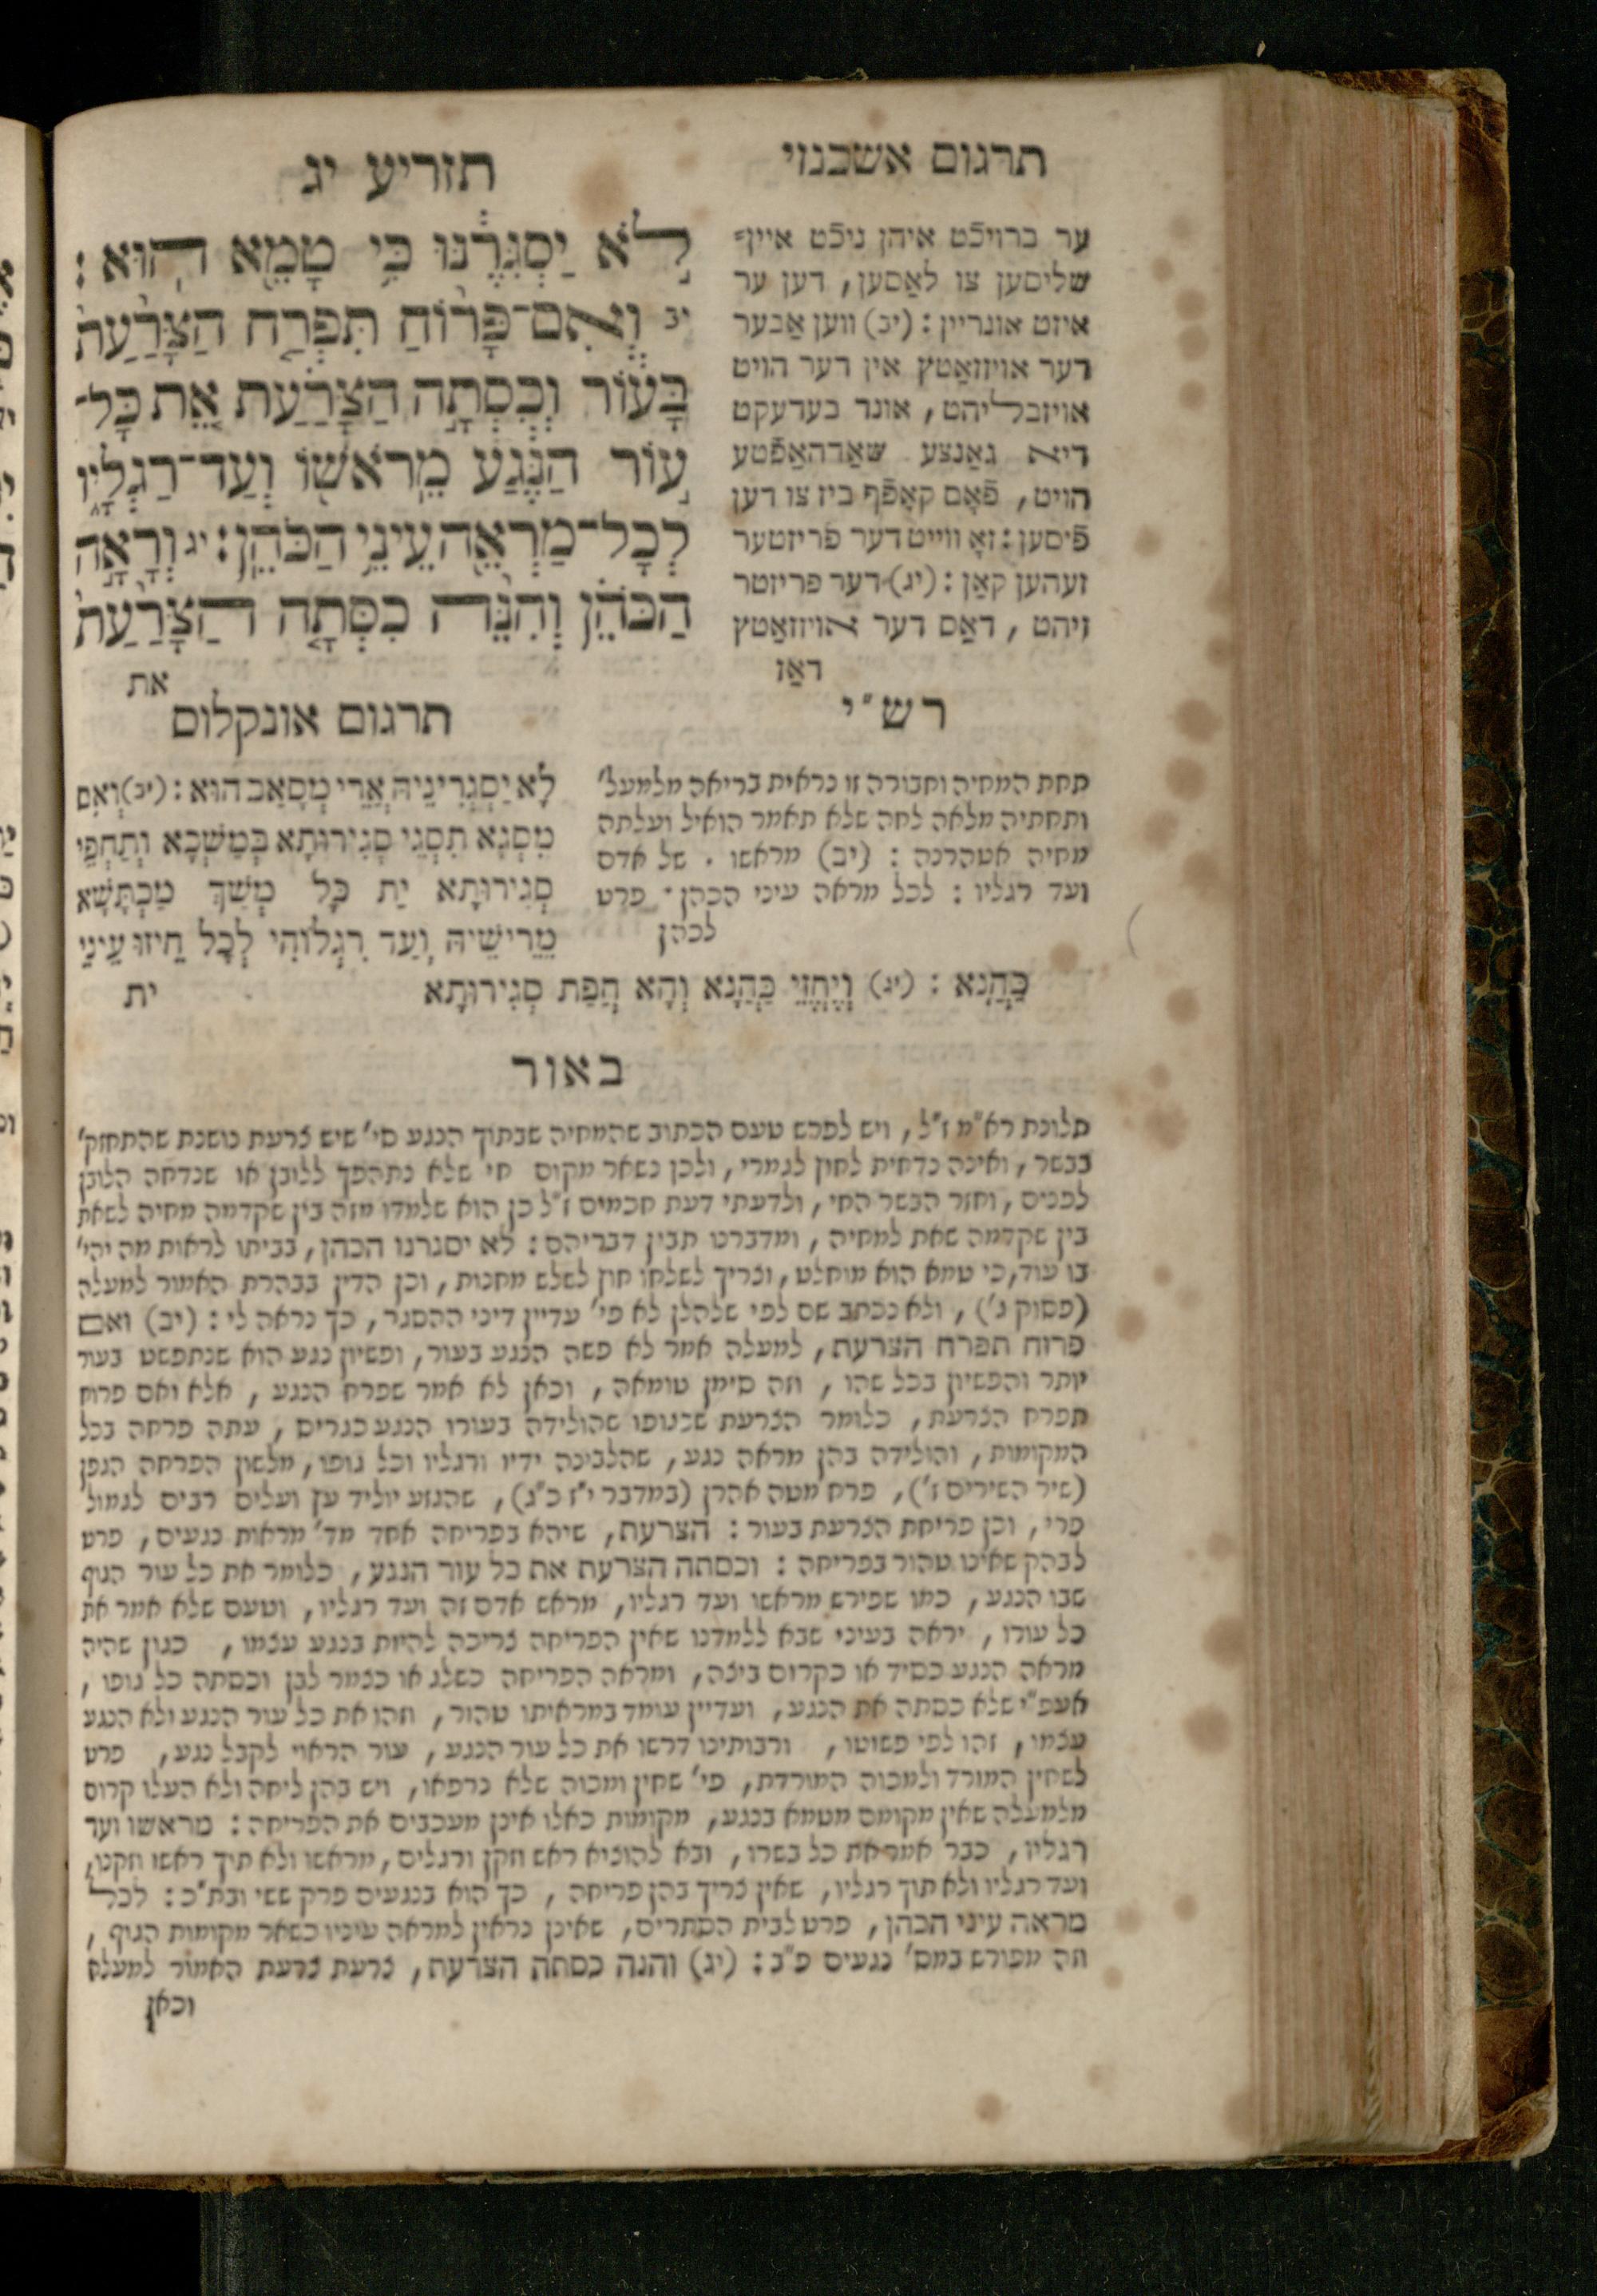 תרגום אשכנזי
תזריע יג
לֹ֣א יַסְגִּרֶ֔נּוּ כִּ֥י טָמֵ֖א הֽוּא׃
יב וְאִם־פָּר֨וֹחַ תִּפְרַ֤ח הַצָּרַ֙עַת֙
בָּע֔וֹר וְכִסְּתָ֣ה הַצָּרַ֗עַת אֵ֚ת כָּל־
ע֣וֹר הַנֶּ֔גַע מֵרֹאשׁ֖וֹ וְעַד־רַגְלָ֑יו
לְכָל־מַרְאֵ֖ה עֵינֵ֥י הַכֹּהֵֽן׃ יג וְרָאָ֣ה
הַכֹּהֵ֗ן וְהִנֵּ֨ה כִסְּתָ֤ה הַצָּרַ֙עַת֙
את
ער ברויכֿט איהן ניכֿט איין־
שליסען צו לאַסען, דען ער
איזט אונריין: (יב) ווען אַבער
דער אויזזאַטץ אין דער הויט
אויזבליהט, אונד בעדעקט
דיא גאַנצע שאַדהאַפֿטע
הויט, פֿאָם קאָפֿף ביז צו דען
פֿיסען: זאָ ווייט דער פריזטער
זעהען קאַן: (יג) דער פריזטר
זיהט, דאַס דער אויזזאַטץ
דאַז
רש"י
תחת המחיה וחבורה זו נראית בריאה מלמעל'
ותחתיה מלאה לחה שלא תאמר הואיל ועלתה
מחיה אטהרנה: (יב) מראשו. של אדם
ועד רגליו: לכל מראה עיני הכהן. פרט
לכהן
תרגום אונקלוס
לָא יַסְגְּרִינֵיהּ אֲרֵי מְסָאַב הוּא: (יב) וְאִם
מִסְגָא תִסְגֵי סְגִירוּתָא בְּמַשְׁכָא וְתַחְפֵי
סְגִירוּתָא יַת כָּל מְשַׁךְ מַכְתָּשָׁא
מֵרֵישֵׁיהּ וְעַד רִגְלוֹהִי לְכָל חֵיזוּ עֵינֵי
כַּהֲנָא: (יג) וְיֶחֱזֵי כַּהֲנָא וְהָא חֲפַת סְגִירוּתָא
ית
באור
תלונת רא"ם ז"ל, ויש לפרש טעם הכתוב שהמחיה שבתוך הנגע סי' שיש צרעת נושנת שהתחזק'
בבשר, ואינה נדחית לחוץ לגמרי, ולכן נשאר מקום חי שלא נתהפך ללובן או שנדחה הלובן
לפנים, וחזר הבשר החי, ולדעתי דעת חכמים ז"ל כן הוא שלמדו מזה בין שקדמה מחיה לשאת
בין שקדמה שאת למחיה, ומדברנו תבין דבריהם: לא יסגרנו הכהן, בביתו לראות מה יהי'
בו עוד, כי טמא הוא מוחלט, וצריך לשלחו חוץ לשלש מחנות, וכן הדין בבהרת האמור למעלה
(פסוק ג'), ולא נכתב שם לפי שלהלן לא פי' עדיין דיני ההסגר, כך נראה לי: (יב) ואם
פרוח תפרח הצרעת, למעלה אמר לא פשה הנגע בעור, ופשיון נגע הוא שנתפשט בעור
יותר והפשיון בכל שהו, וזה סימן טומאה, וכאן לא אמר שפרח הנגע, אלא ואם פרוח
תפרח הצרעת, כלומר הצרעת שבגופו שהולידה בעורו הנגע כגרים, עתה פרחה בכל
המקומות, והולידה בהן מראה נגע, שהלבינה ידיו ורגליו וכל גופו, מלשון הפרחה הגפן
(שיר השירים ז'), פרח מטה אהרן (במדבר י"ז כ"ג), שהגזע יוליד עץ ועלים רבים לגמול
פרי, וכן פריחת הצרעת בעור: הצרעת, שיהא בפריחה אחד מד' מראות נגעים, פרט
לבהק שאינו טהור בפריחה: וכסתה הצרעת את כל עור הנגע, כלומר את כל עור הגוף
שבו הנגע, כמו שפירש מראשו ועד רגליו, מראש אדם זה ועד רגליו, וטעם שלא אמר את
כל עורו, יראה בעיני שבא ללמדנו שאין הפריחה צריכה להיות בנגע עצמו, כגון שהיה
מראה הנגע כסיד או כקרום ביצה, ומראה הפריחה כשלג או כצמר לבן וכסתה כל גופו,
אעפ"י שלא כסתה את הנגע, ועדיין עומד במראיתו טהור, וזהו את כל עור הנגע ולא הנגע
עצמו, זהו לפי פשוטו, ורבותינו דרשו את כל עור הנגע, עור הראוי לקבל נגע, פרט
לשחין המורד ולמכוה המורדת, פי' שחין ומכוה שלא נרפאו, ויש בהן ליחה ולא העלו קרום
מלמעלה שאין מקומם מטמא בנגע, מקומות כאלו אינן מעכבים את הפריחה: מראשו ועד
רגליו, כבר אמר את כל בשרו, ובא להוציא ראש וזקן ורגלים, מראשו ולא תוך ראשו וזקנו,
ועד רגליו ולא תוך רגליו, שאין צריך בהן פריחה, כך הוא בנגעים פרק ששי ובת"כ: לכל
מראה עיני הכהן, פרט לבית הסתרים, שאינן נראין למראה עיניו כשאר מקומות הגוף,
וזה מפורש במס' נגעים פ"ב: (יג) והנה כסתה הצרעת, צרעת צרעת האמור למעלה
וכאן